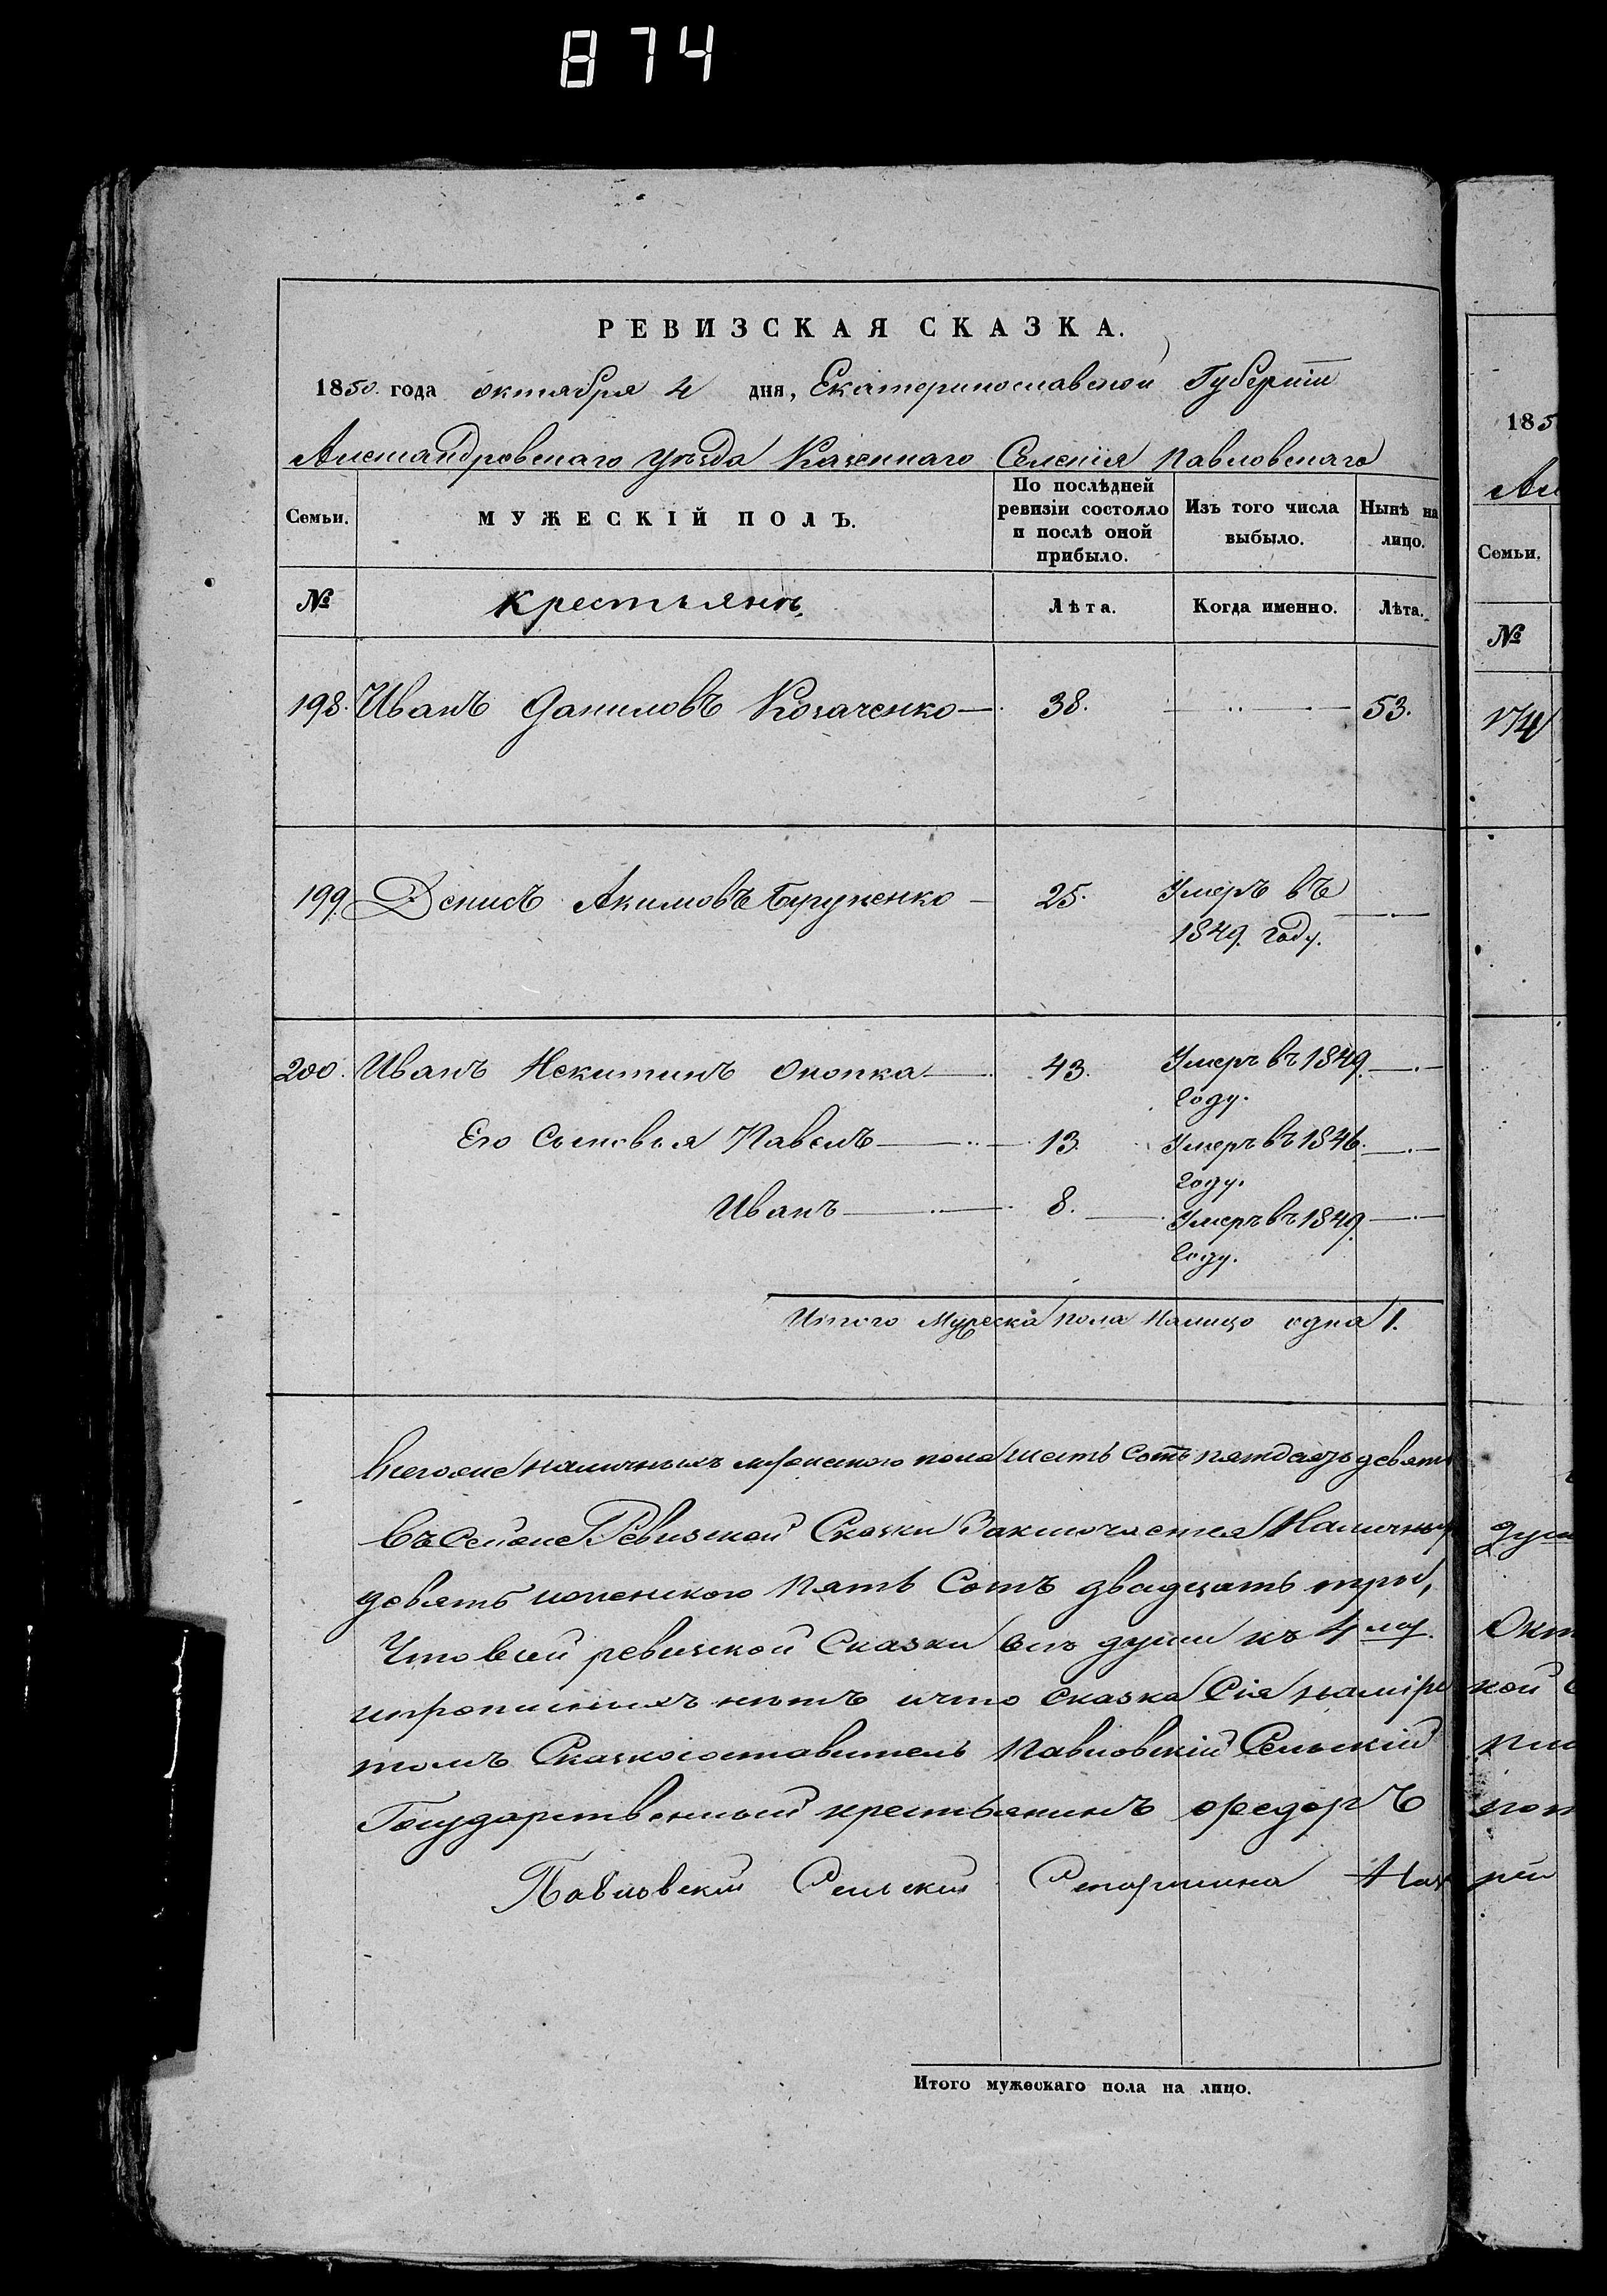 874
РЕВИЗСКАЯ СКАЗКА.
1850. года октября 4 дня, Екатеринославской Губерніи
Александровскаго уѣзда Казеннаго Селенія Павловскаго
Семьи.
МУЖЕСКІЙ ПОЛЪ.
По послѣдней ревизіи состояло и послѣ оной прибыло.
Изъ того числа выбыло.
Нынѣ на лицо.
№
крестьянъ
Лѣта.
Когда именно.
Лѣта.
198. Иванъ Даниловъ Козаченко 38. 53.
199. Денисъ Акимовъ 25. Умеръ въ
1849. году.
200. Иванъ Некитинъ Опопка 43. Умеръ въ 1849.
году.
Его Сыновья Павелъ 13. Умеръ въ 1846.
году.
Иванъ 8. Умеръ въ 1849.
году.
Итого Мужеска пола Налицо одна 1.
наличныхъ пола шесть Сотъ девять
Ревизской Сказки Заключается
девять женского пять Сотъ двадцать три,
Что ревизской Сказки душъ къ 4 му.
прописныхъ нѣтъ что сказка Сія
томъ Сказкосоставитель Павловскій Сельскій
Государственный крестьянинъ Федоръ
Павловскій Сельскій Старшина
Итого мужескаго пола на лицо.
185
Семьи.
№
174